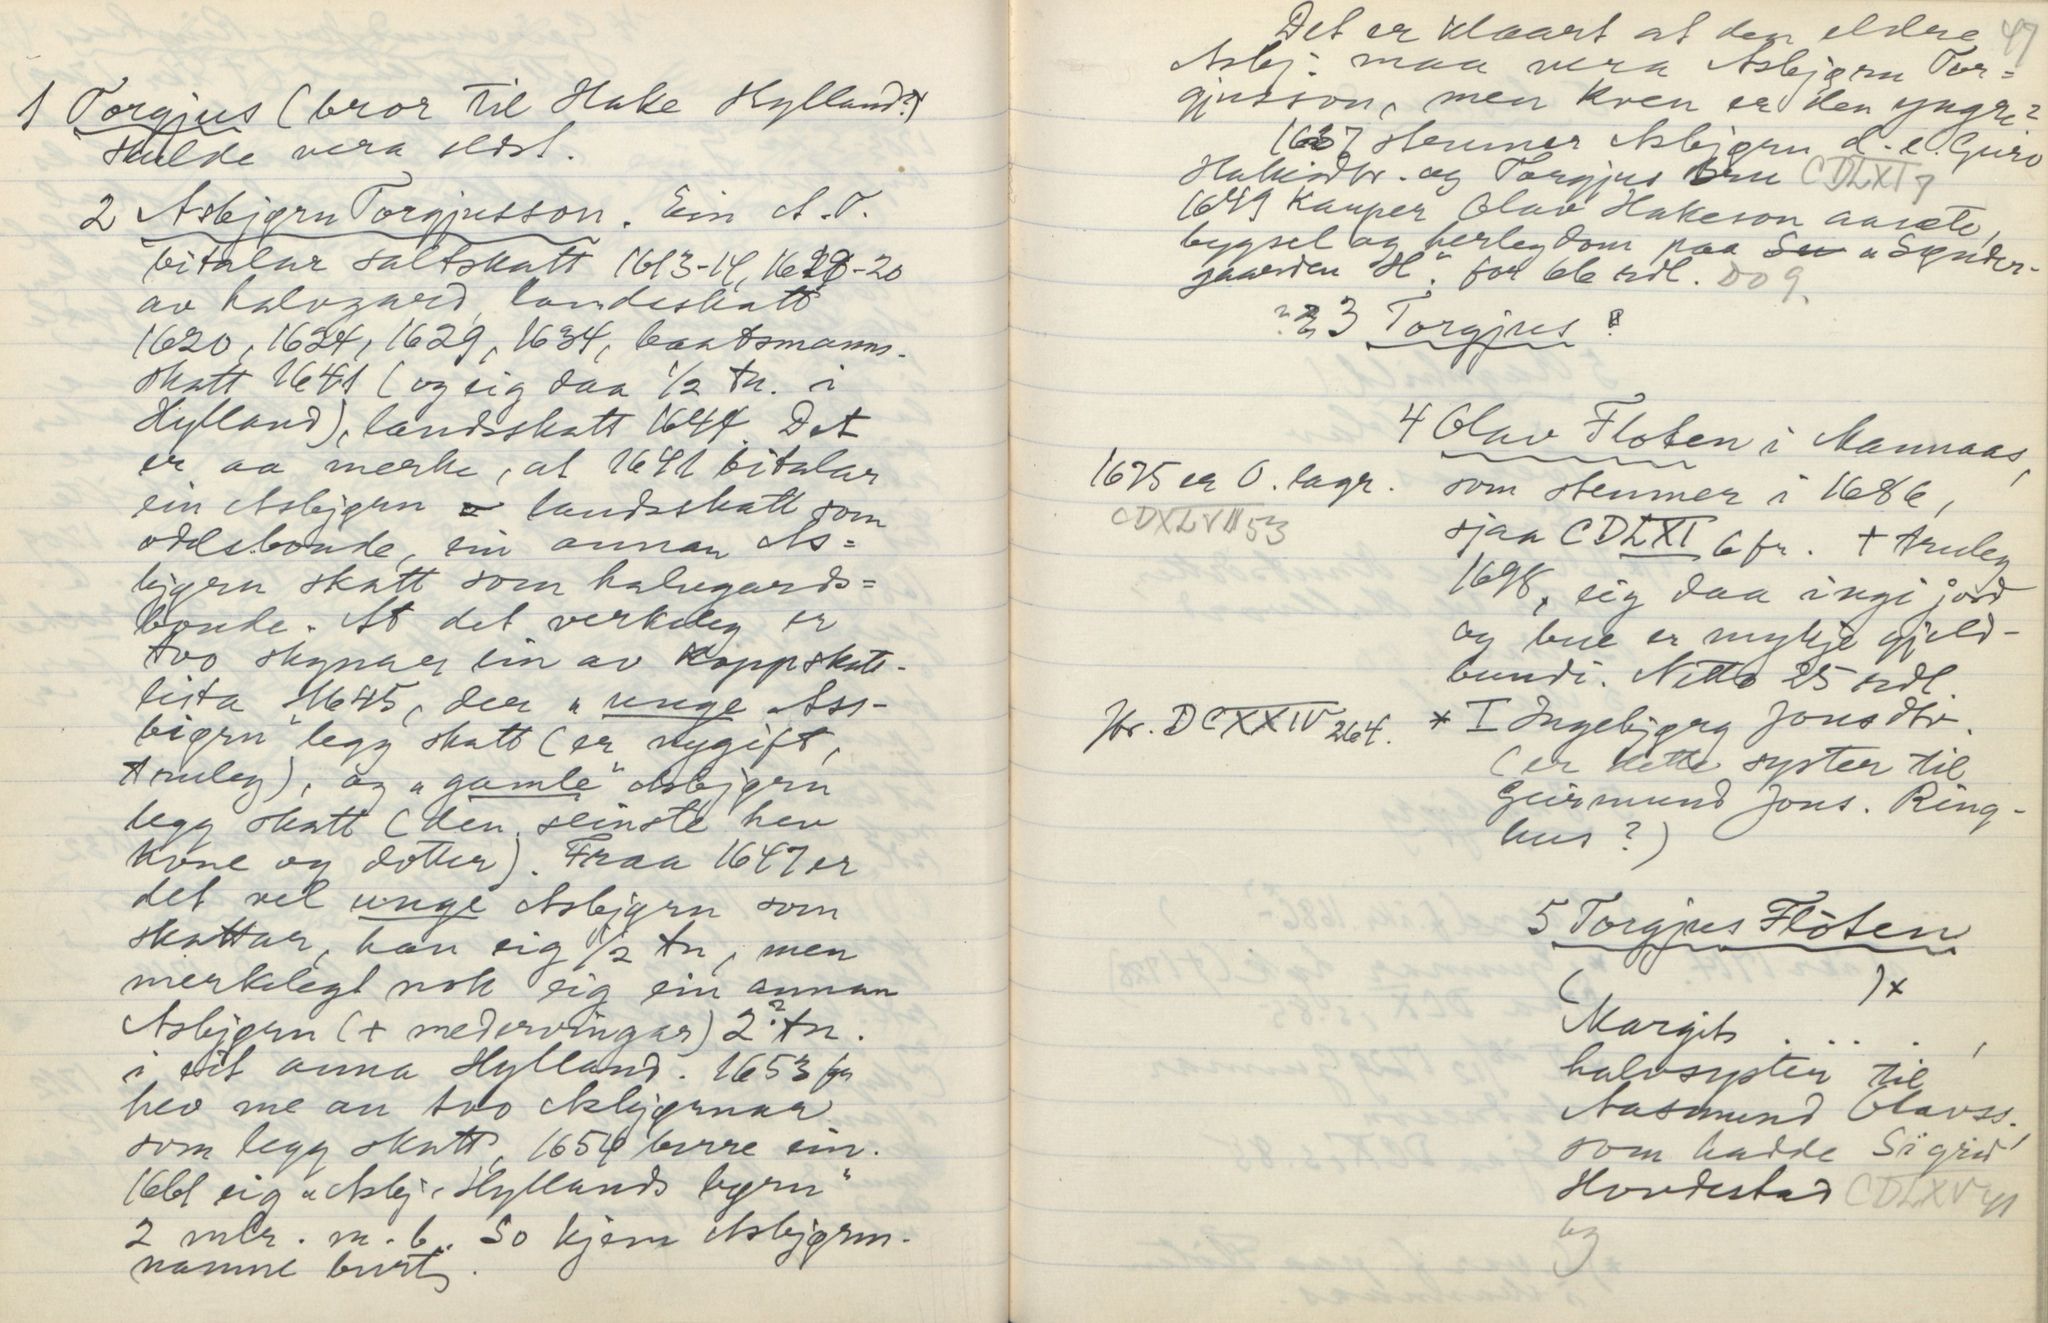 1 Torgjus (bror til Hake Hylland?)
skulde vera eldst.
2 Asbjørn Torgjusson. Ein A.T.
bitalar saltskatt 1613-14, 1618-20
av halvgard, landeskatt
1620, 1624, 1629, 1634, baatsmanns-
skatt 1641 (og eig daa 1/2 tn. i
Hylland), landsskatt 1644. Det
er aa merke, at 1641 bitalar
ein Asbjørn landsskatt som
odelsbonde, ein annan As=
bjørn skatt som halvgards=
bonde. At det verkeleg er
tvo skynar ein av Koppskatt-
lista 1645, der "unge Ass-
biørn" legg skatt (er nygift,
truleg), og "gamle" Asbjørn
legg skatt (den seinste hev
kone og dotter). Fraa 1647 er
det vel unge Asbjørn som
skattar, han eig 1/2 tn, men
merkelegt nok eig ein annan
Asbjørn (+ medervingar) 2? tn.
i eit anna Hylland. 1653 fr
hev me au tvo Asbjørnar
som legg skatt, 1654 berre ein.
1661 eig "Asbj. Hyllands børn"
2 mlr. m. b. So kjem Asbjørn-
namne burt.
47
Det er klaart at den eldre
Asbj. maa vera Asbjørn Tor=
gjusson, men kven er den yngre?
1637 stemner Asbjørn d. e. Guro
Hakisdtr. og Torgjus Bru CDLXI 7
1649 kauper Olav Hakeson aasæte,
bygsel og herlegdom paa "Synder-
gaarden H." for 66 rdl. DO 9.
?? 3 Torgjus?
4 Olav Floten i Mannaas,
1675 er O. lagr. som stemner i 1686,
CDXLVIII 53 sjaa CDLXI 6 fr. + truleg
1698, eig daa ingi jord
og bue er mykje gjeld-
bundi. Netto 25 rdl.
Jfr. DCXXIV 264. * I Ingebjørg Jonsdtr.
(er dette syster til
Geirmund Jons. Ring-
hus?)
5 Torgjus Floten
( ) x
Margit . . . . ,
halvsyster til
Aasmund Olavss.,
som hadde Sigrid
Hovdestad CDLXV 41
og